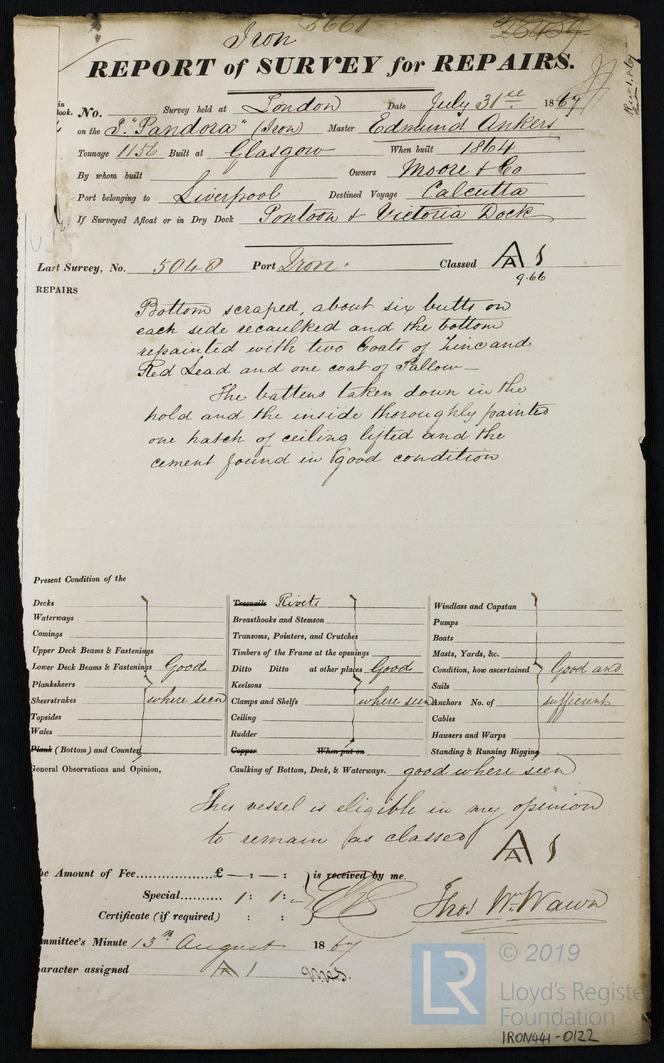 5661
Iron
REPORT of SURVEY for REPAIRS.
No. Survey held at London Date July 31st 1867
on the S. "Pandora" (Iron) Master Edmund Ankers
Tonnage 1156 Built at Glasgow When built 1864
By whom built Owners Moore & Co
Port belonging to Liverpool Destined Voyage Calcutta
If Surveyed Afloat or in Dry Dock Pontoon & Victoria Dock
Last Survey, No. 5048 Port Iron. Classed A A 1
9.66
REPAIRS
Bottom scraped, about six butts on
each side recaulked and the bottom
repainted with two Coats of Zinc and
Red Lead and one coat of Tallow—
The battens taken down in the
hold and the inside thoroughly painted
one hatch of ceiling lifted and the
cement found in good condition
Present Condition of the
Decks
Waterways
Comings
Upper Deck Beams & Fastenings
Lower Deck Beams & Fastenings Good
Planksheers
Sheerstrakes where seen
Topsides
Wales
Plank (Bottom) and Counter
Treenails Rivets
Breasthooks and Stemson
Transoms, Pointers, and Crutches
Timbers of the Frame at the openings
Ditto Ditto at other places Good
Keelsons
Clamps and Shelfs where seen
Ceiling
Rudder
Copper When put on
Windlass and Capstan
Pumps
Boats
Masts, Yards, &c.
Condition, how ascertained Good and
Sails
Anchors No. of sufficient
Cables
Hawsers and Warps
Standing & Running Rigging
General Observations and Opinion, Caulking of Bottom, Deck, & Waterways. good where seen
This vessel is eligible in my opinion
to remain as classed A A 1
he Amount of Fee............... £ — : — : is received by me.
Special.......... 1 : 1 : —
Certificate (if required) : :
Thos Wm Wawn
mmittee's Minute 13th August 1867
aracter assigned A 1
LR
© 2019
Lloyd's Register
Foundation
IRON441-0122